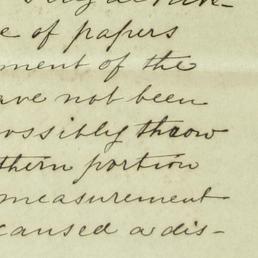 e of papers
ment of the
ave not been
ossibly throw
thern portion
measurement
caused a dis-